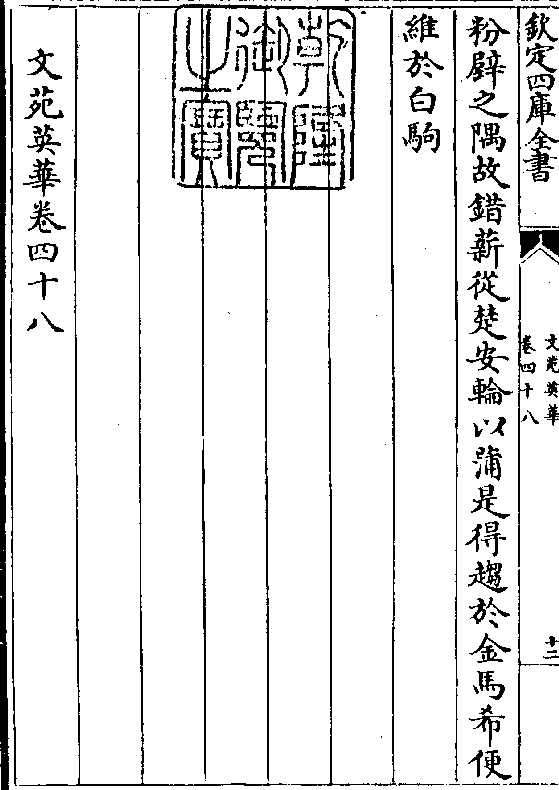 欽定四庫全書
文苑英華
卷四十八
十二
粉壁之隅故錯薪從楚安輪以蒲是得趨於金馬希便
維於白駒
乾隆
御覽
之寶
文苑英華卷四十八